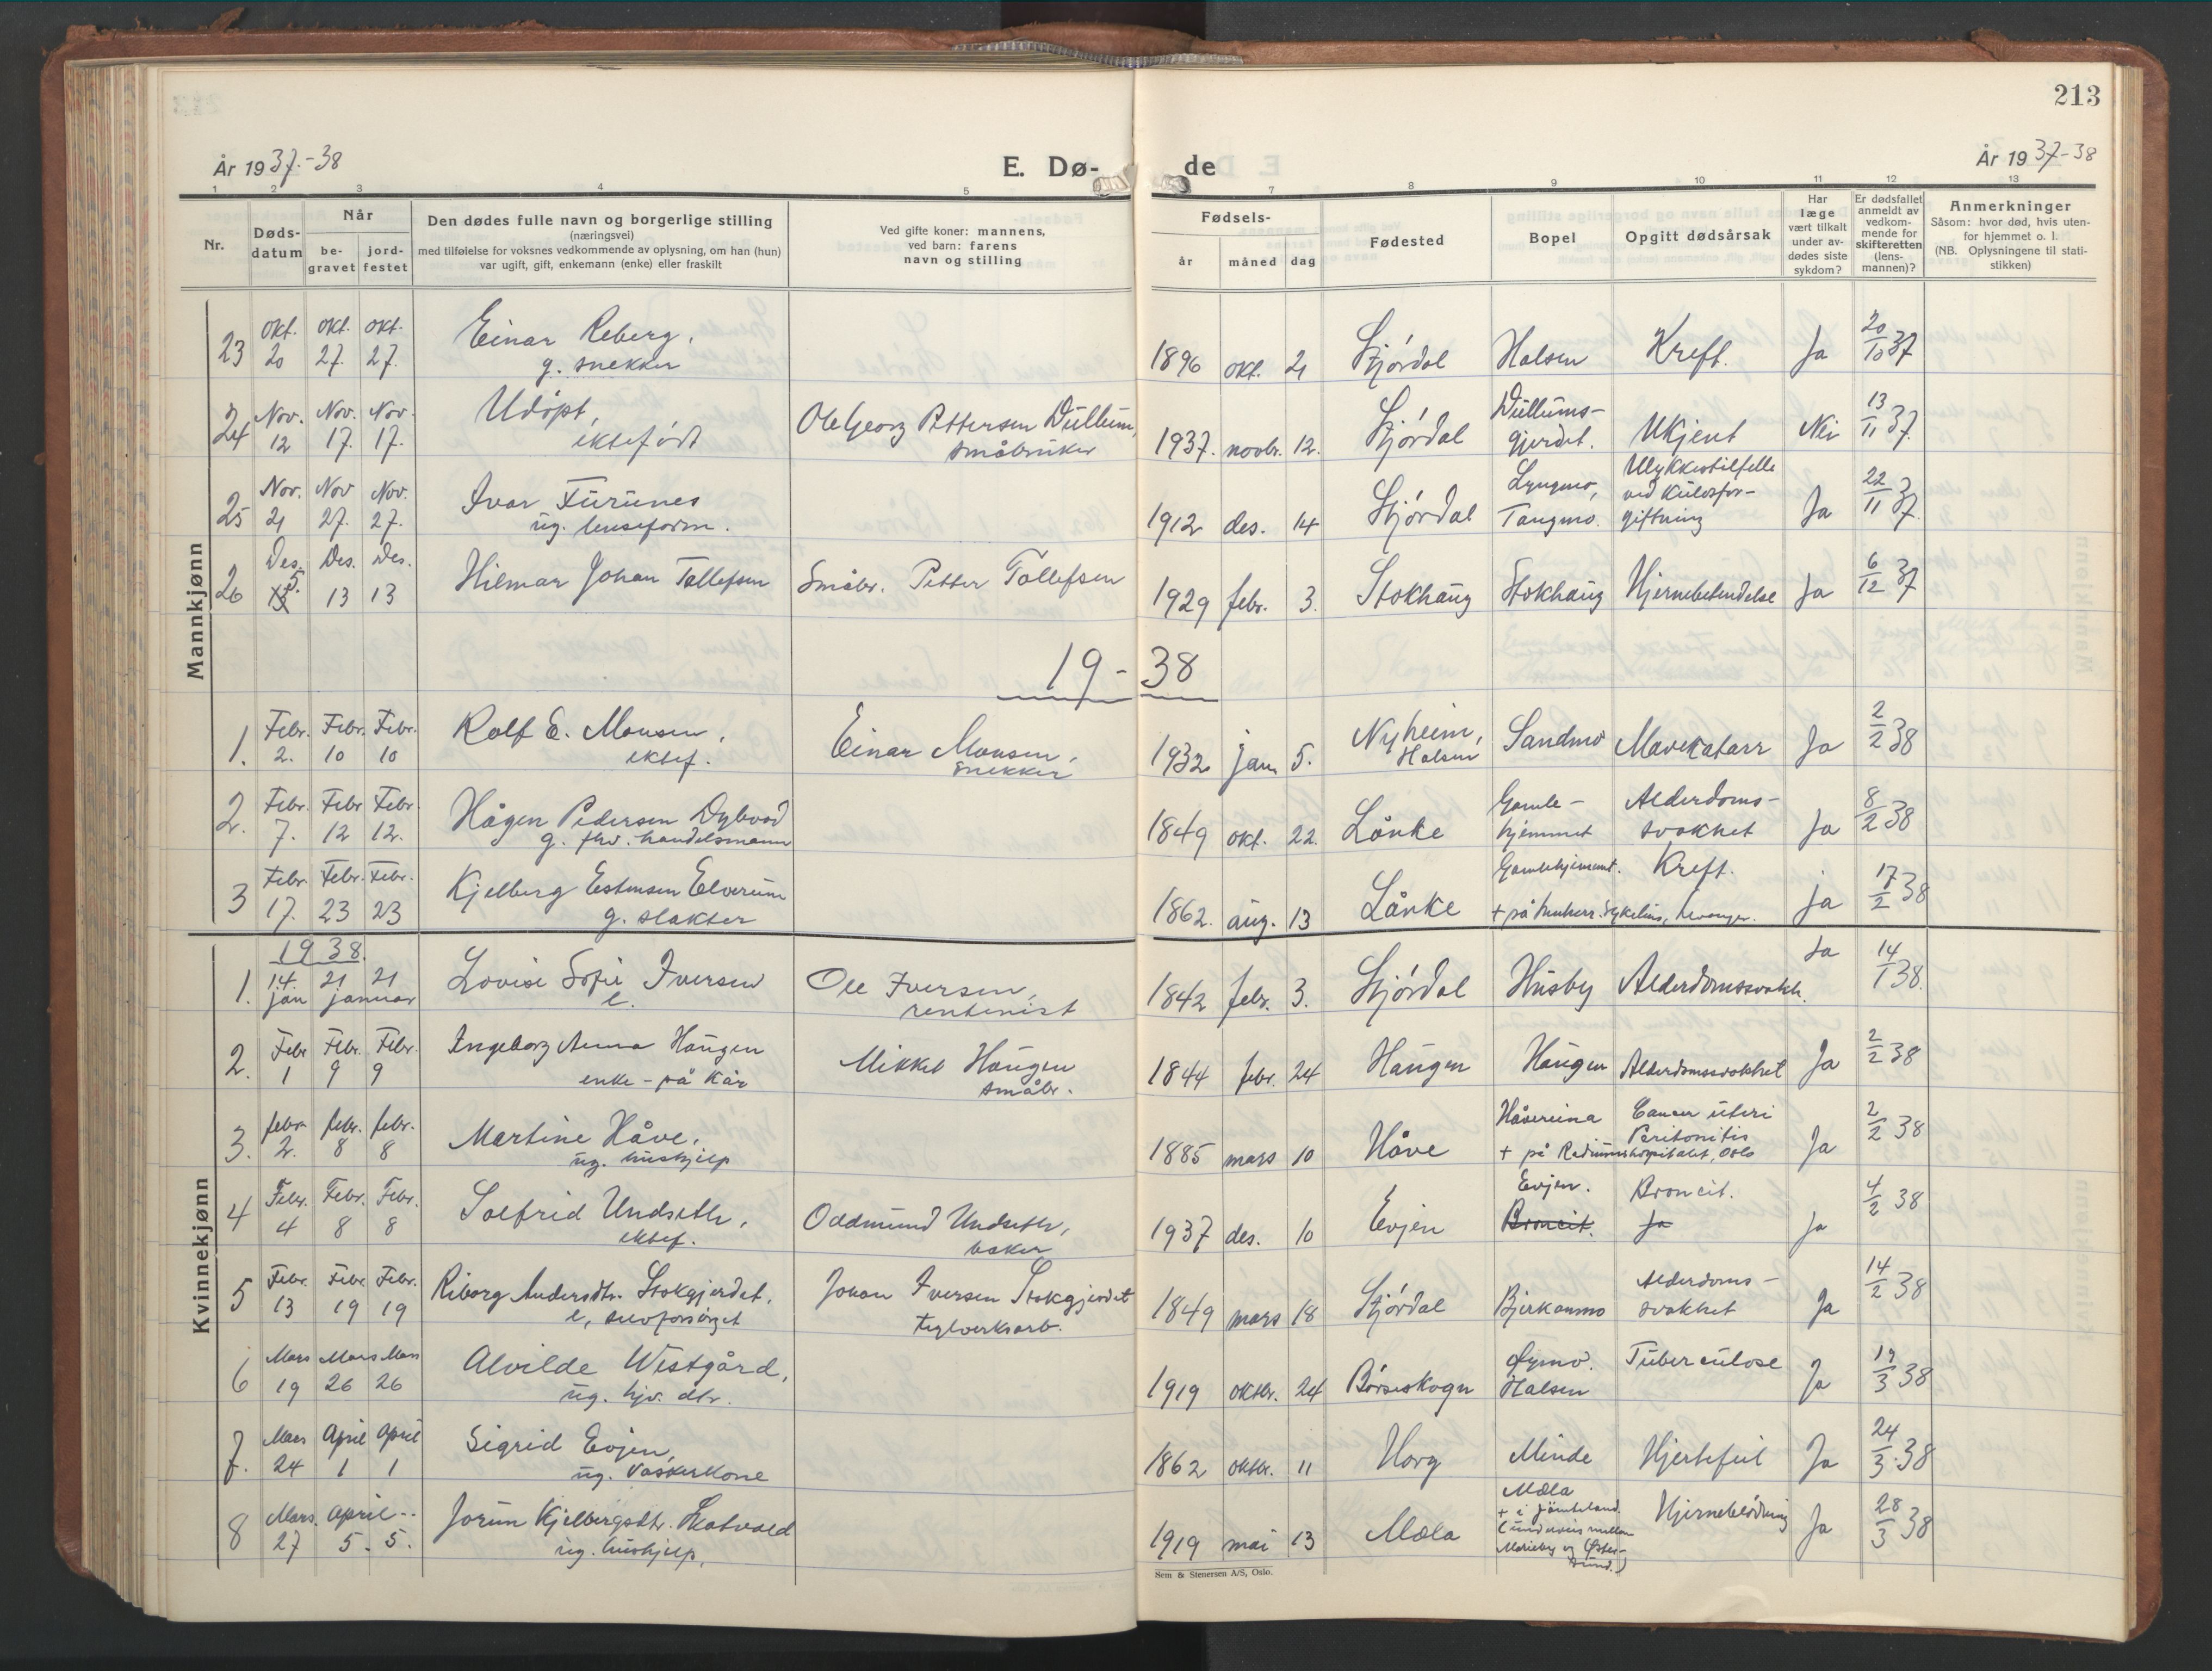 213
År 1937-38
E. Dø-de
År 1937-38
1 2 3 4 5 7 8 9 10 11 12 13
Nr.
Døds-
datum
Når
be-
gravet
jord-
festet
Den dødes fulle navn og borgerlige stilling
(næringsvei)
med tilføielse for voksnes vedkommende av oplysning, om han (hun)
var ugift, gift, enkemann (enke) eller fraskilt
Ved gifte koner: mannens,
ved barn: farens
navn og stilling
Fødsels-
år måned dag
Fødested
Bopel
Opgitt dødsårsak
Har
læge
vært tilkalt
under av-
dødes siste
sykdom?
Er dødsfallet
anmeldt av
vedkom-
mende for
skifteretten
(lens-
mannen)?
Anmerkninger
Såsom: hvor død, hvis uten-
for hjemmet o. l.
(NB. Oplysningene til stati-
stikken)
Mannkjønn
23 Okt. 20 Okt. 27. Okt. 27. Einar Reberg, g. snekker 1896 okt. 21 Stjórdal Halsen Kreft. Ja 20/10 37
24 Nov. 12 Nov. 17. Nov. 17. Udöpt, ektefödt Ole Georg Pettersen Düllüm, småbrüker 1937. novbr. 12. Stjórdal Düllüms-gjerdet. Ukjent Nei 13/11 37.
25 Nov. 21 Nov 27. Nov. 27. Ivar Fürünes üg. lenseform. 1912 des. 14 Stjórdal Lyngmo, Tangmo. Ulykkestilfelle ved külosfor-giftning Ja 22/11 37.
26 Des. 5. Des. 13 Des. 13 Hilmar Johan Tollefsen Småbr. Petter Tollefsen 1929 febr. 3. Stokhaüg Stokhaüg Hjernebetendelse Ja 6/12 37
19-38
1. Febr. 2. Febr. 10 Febr. 10 Rolf E. Monsen, ektef. Einar Monsen, snekker 1932 jan 5. Nyheim, Halsen Sandmo Mavekatarr Ja 2/2 38
2. Febr. 7. Febr 12 Febr. 12. Hågen Pedersen Dybvad g. fhv. handelsmann 1849 okt. 22. Lånke Gamle-hjemmet Alderdoms-svakhet Ja 8/2 38
3 Febr. 17. Febr. 23 Febr. 23 Kjelberg Estensen Elverüm g. slakter 1862. aüg. 13 Lånke Gamlehjemmet. Kreft. + på Innherr. Sykehüs, Levanger. ja 17/2 38
Kvinnekjønn
1938.
1. 14. jan 21 21 januar Lovise Sofie Iversen e. Ole Iversen, rentenist 1842 febr. 3. Stjórdal Hüsby Alderdomssvakh. Ja 14/1 38.
2. Febr 1 Febr. 9 Febr. 9 Ingeborg Anna Haügen enke - på kår Mikkel Haügen småbr. 1844 febr. 24 Haügen Haügen Alderdomssvakhet Ja 2/2 38
3. febr. 2. febr. 8 febr. 8 Martine Håve, üg. hüshjelp 1885 mars 10 Håve Håvereina Cancer üteri Peritonitis + på Radiumshospitalet, Oslo Ja 2/2 38
4 Febr. 4 Febr. 8 Febr. 8 Solfrid Undseth, ektef. Oddmünd Undseth, baker 1937 des. 10 Evjen Evjen. Broncit. Broncit. Ja Ja 4/2 38
5 Febr. 13 Febr. 19 Febr. 19 Riborg Andersdtr. Stokgjerdet, e, selvforsörget Johan Iversen Stokgjerdet teglverksarb. 1849 mars 18 Stjórdal Bjerkanmo Alderdoms-svakhet Ja 14/2 38
6 Mars 19 Mars 26 Mars 26 Alvilde Westgård, üg. hjv. dtr. 1919 oktbr. 24 Börseskogn Öymo. Halsen Tüberkülose Ja 19/3 38
7. Mars 24 April 1 April 1 Sigrid Evjen, üg. vaskerkone 1862 oktbr. 11 Horg Minde Hjertefeil Ja 24/3 38
8 Mars. 27 April 5. 5. Jorün Kjelbergsdtr. Skatvold üg. hüshjelp. 1919 mai 13 Mæla Mæla + i Jämteland (ünderveis mellem Marieby og Öster-sünd.) Hjerneblödning Ja 28/3 38
Sem & Stenersen A/S, Oslo.